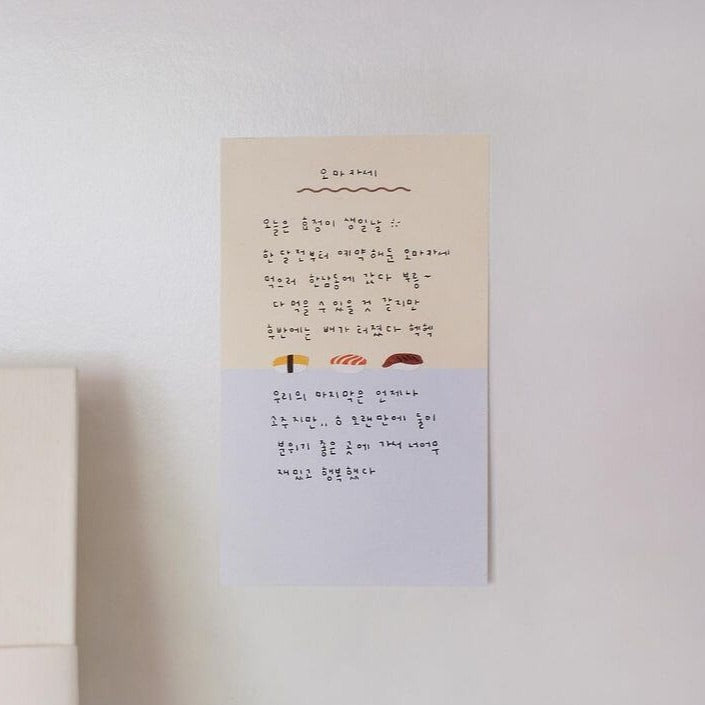 오마카세
오늘은 효정이 생일날
한 달 전부터 예약해둔 오마카세
먹으러 한남동에 갔다 부릉~
다 먹을 수 있을 것 같지만
후반에는 배가 터졌다 헥헥
우리의 마지막은 언제나
소주지만.. 오랜만에 둘이
분위기 좋은 곳에 가서 너어무
재밌고 행복했다